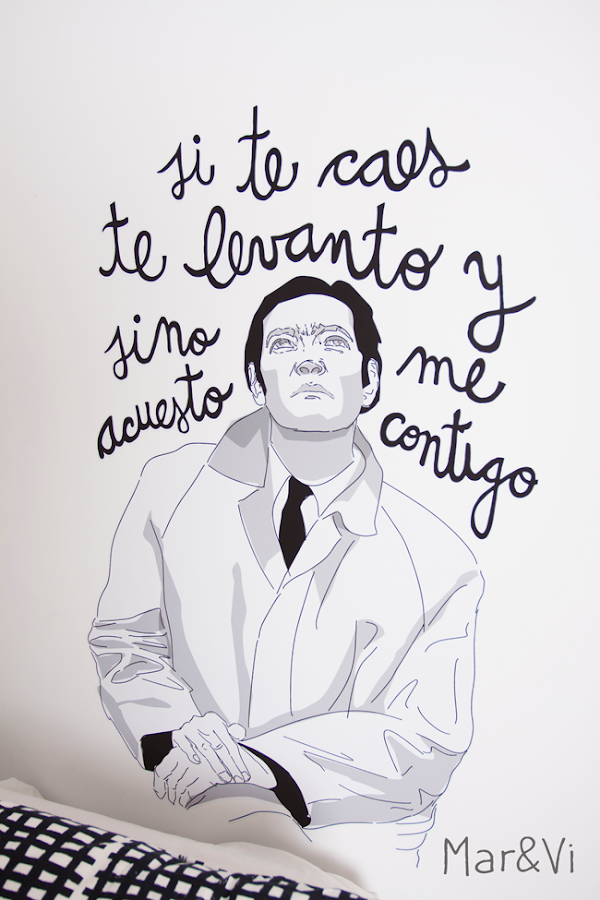 si te caes
te levanto y
sino me
acuesto contigo
Mar&Vi